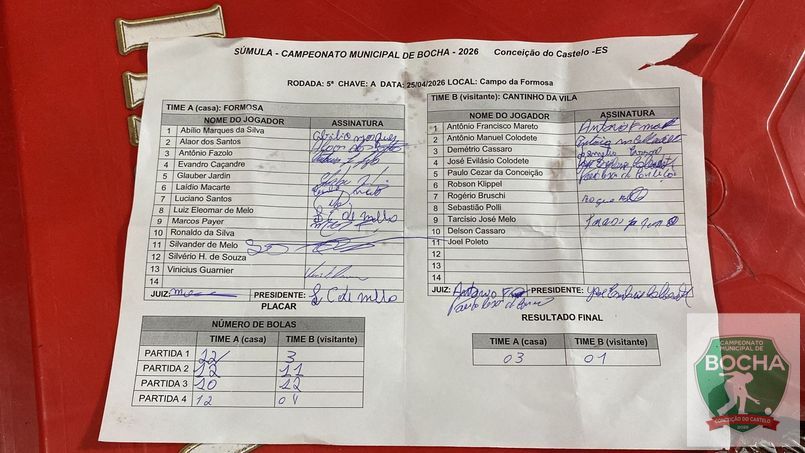 SÚMULA - CAMPEONATO MUNICIPAL DE BOCHA - 2026 Conceição do Castelo -ES
RODADA: 5ª CHAVE: A DATA: 25/04/2026 LOCAL: Campo da Formosa
TIME A (casa): FORMOSA
NOME DO JOGADOR ASSINATURA
1 Abílio Marques da Silva
2 Alaor dos Santos
3 Antônio Fazolo
4 Evandro Caçandre
5 Glauber Jardin
6 Laídio Macarte
7 Luciano Santos
8 Luiz Eleomar de Melo
9 Marcos Payer
10 Ronaldo da Silva
11 Silvander de Melo
12 Silvério H. de Souza
13 Vinicius Guarnier
14
JUIZ: PRESIDENTE:
TIME B (visitante): CANTINHO DA VILA
NOME DO JOGADOR ASSINATURA
1 Antônio Francisco Mareto
2 Antônio Manuel Colodete
3 Demétrio Cassaro
4 José Evilásio Colodete
5 Paulo Cezar da Conceição
6 Robson Klippel
7 Rogério Bruschi
8 Sebastião Polli
9 Tarcisio José Melo
10 Delson Cassaro
11 Joel Poleto
12
13
14
JUIZ: Antonio PRESIDENTE:
PLACAR
NÚMERO DE BOLAS
TIME A (casa) TIME B (visitante)
PARTIDA 1 12 3
PARTIDA 2 12 11
PARTIDA 3 10 12
PARTIDA 4 12 04
RESULTADO FINAL
TIME A (casa) TIME B (visitante)
03 01
CAMPEONATO
MUNICIPAL DE
BOCHA
CONCEIÇÃO DO CASTELO
2026